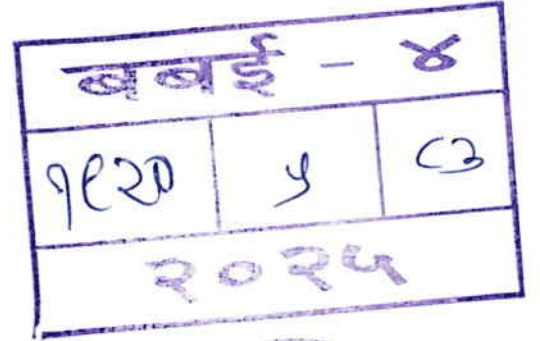 बबई - ४
१९२० ५ ८३
२०२५